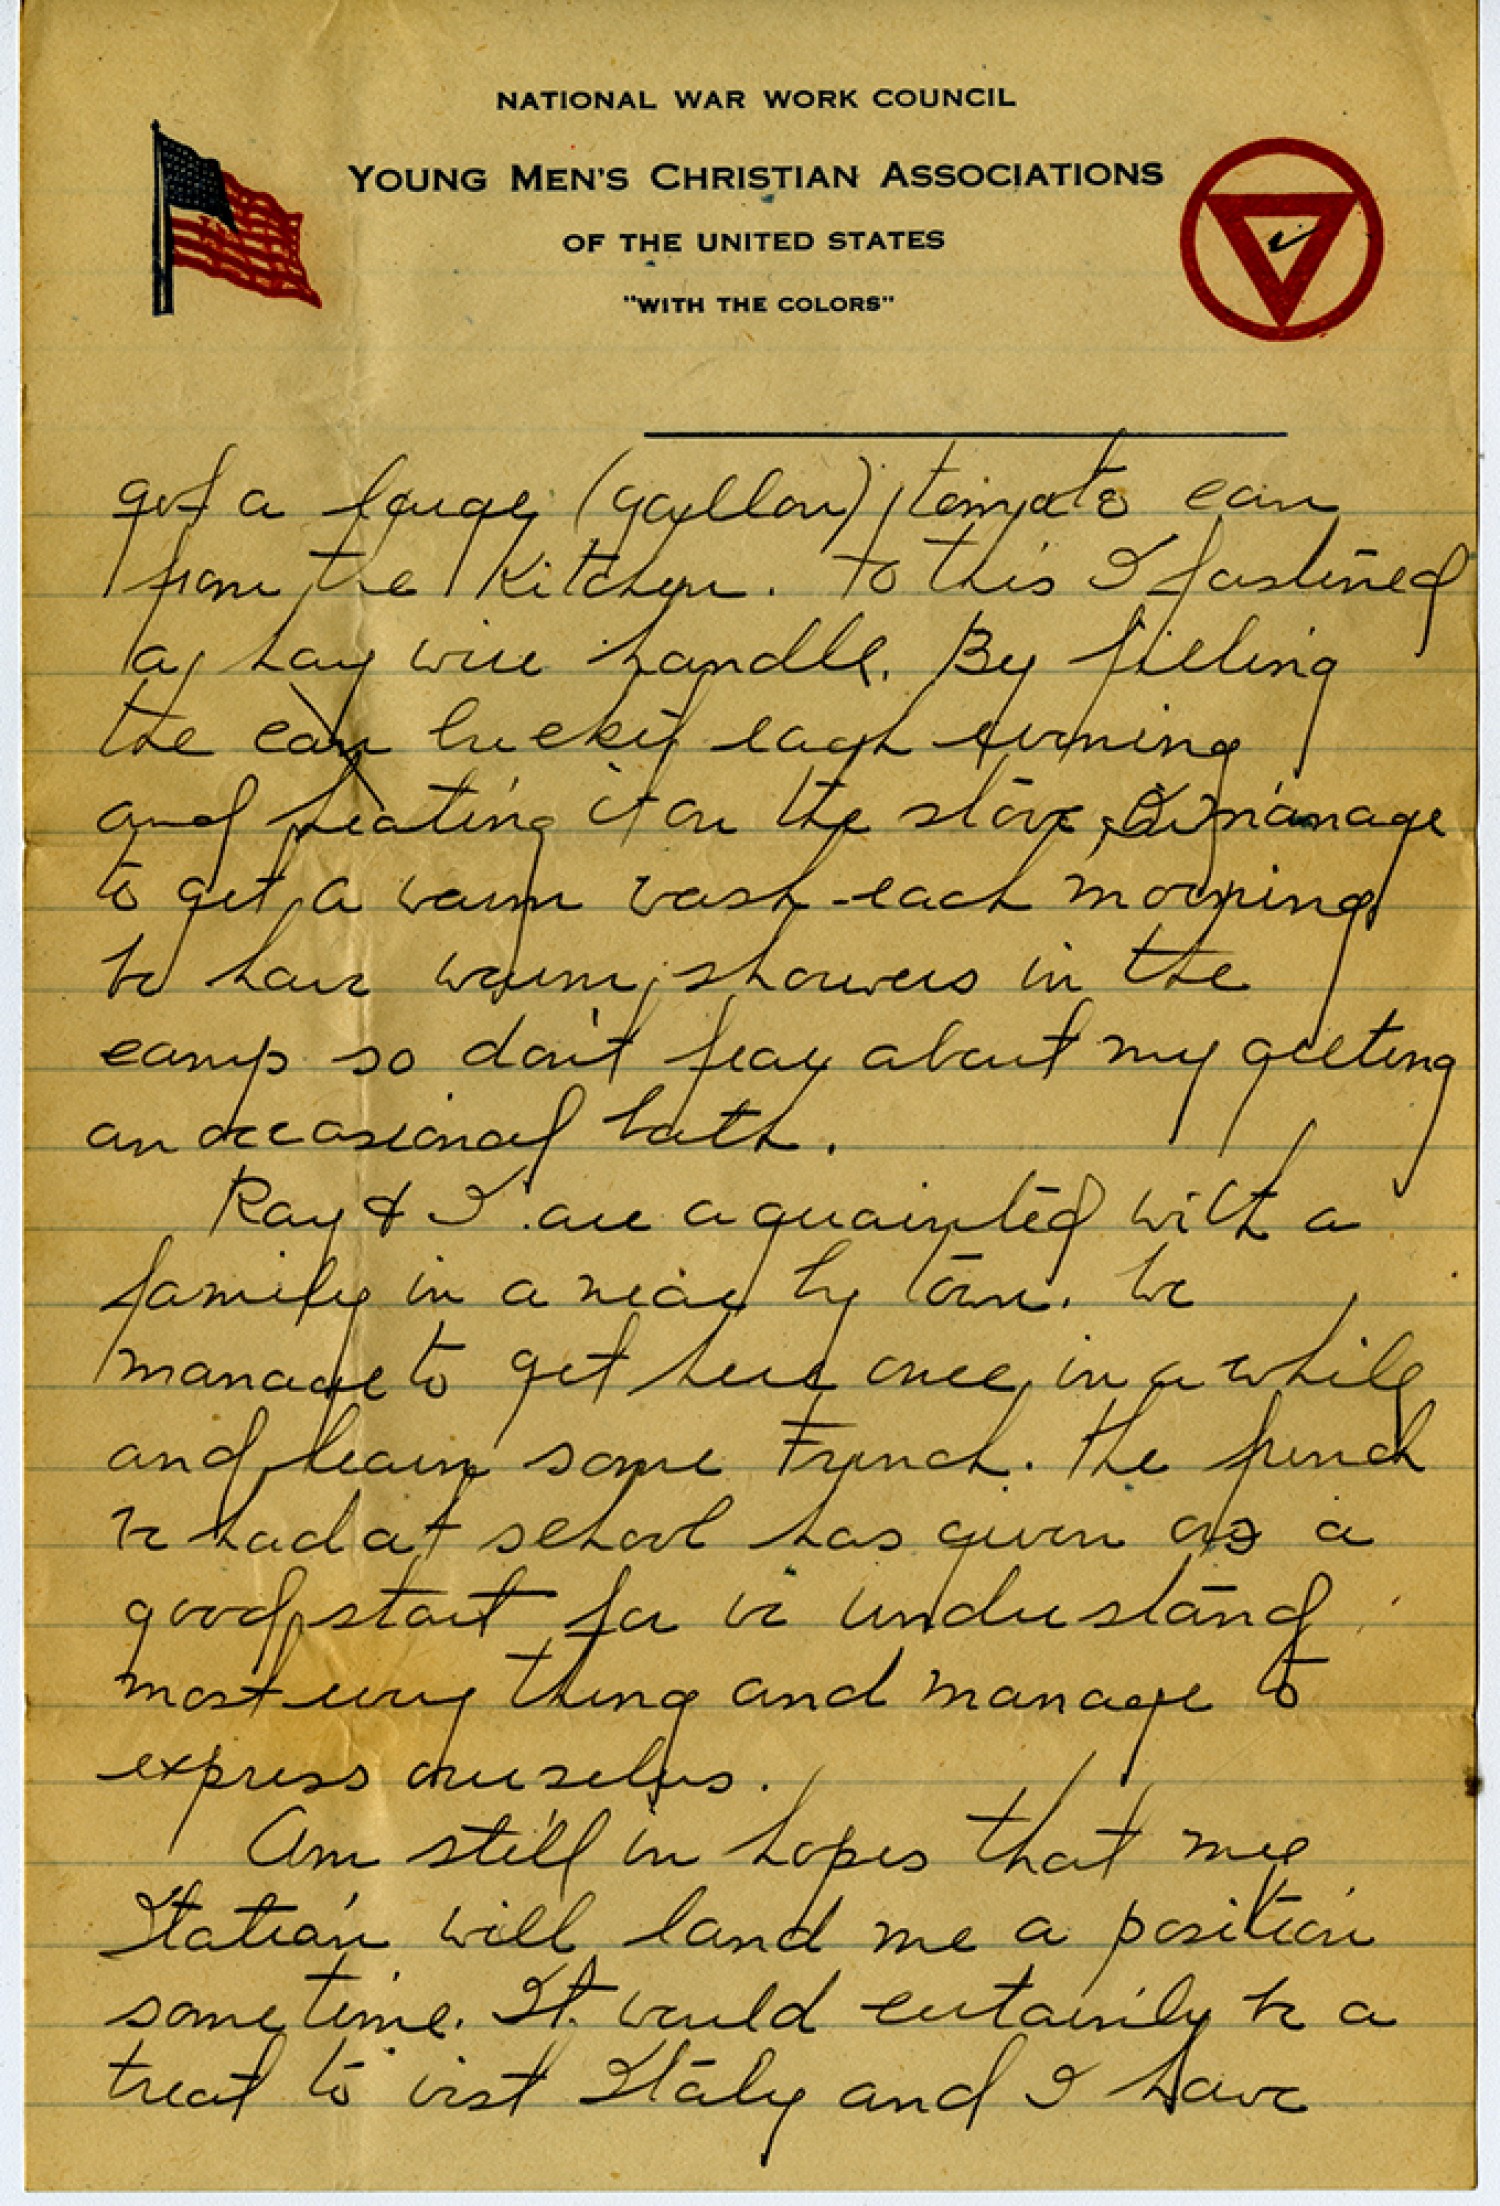 NATIONAL WAR WORK COUNCIL
YOUNG MEN'S CHRISTIAN ASSOCIATIONS
OF THE UNITED STATES
"WITH THE COLORS"
got a large (gallon) tomato can
from the kitchen. To this I fastened
a hay wire handle. By filling
the can bucket each evening
and heating it on the stove, I manage
to get a warm wash each morning.
We have warm showers in the
camp so don't fear about my getting
an occasional bath.
Ray & I are aquainted with a
family in a near by town. We
manage to get here once in a while
and learn some French. The french
we had at school has given us a
good start for we understand
most every thing and manage to
express ourselves.
Am still in hopes that my
Italian will land me a position
some time. It would certainly be a
treat to visit Italy and I have